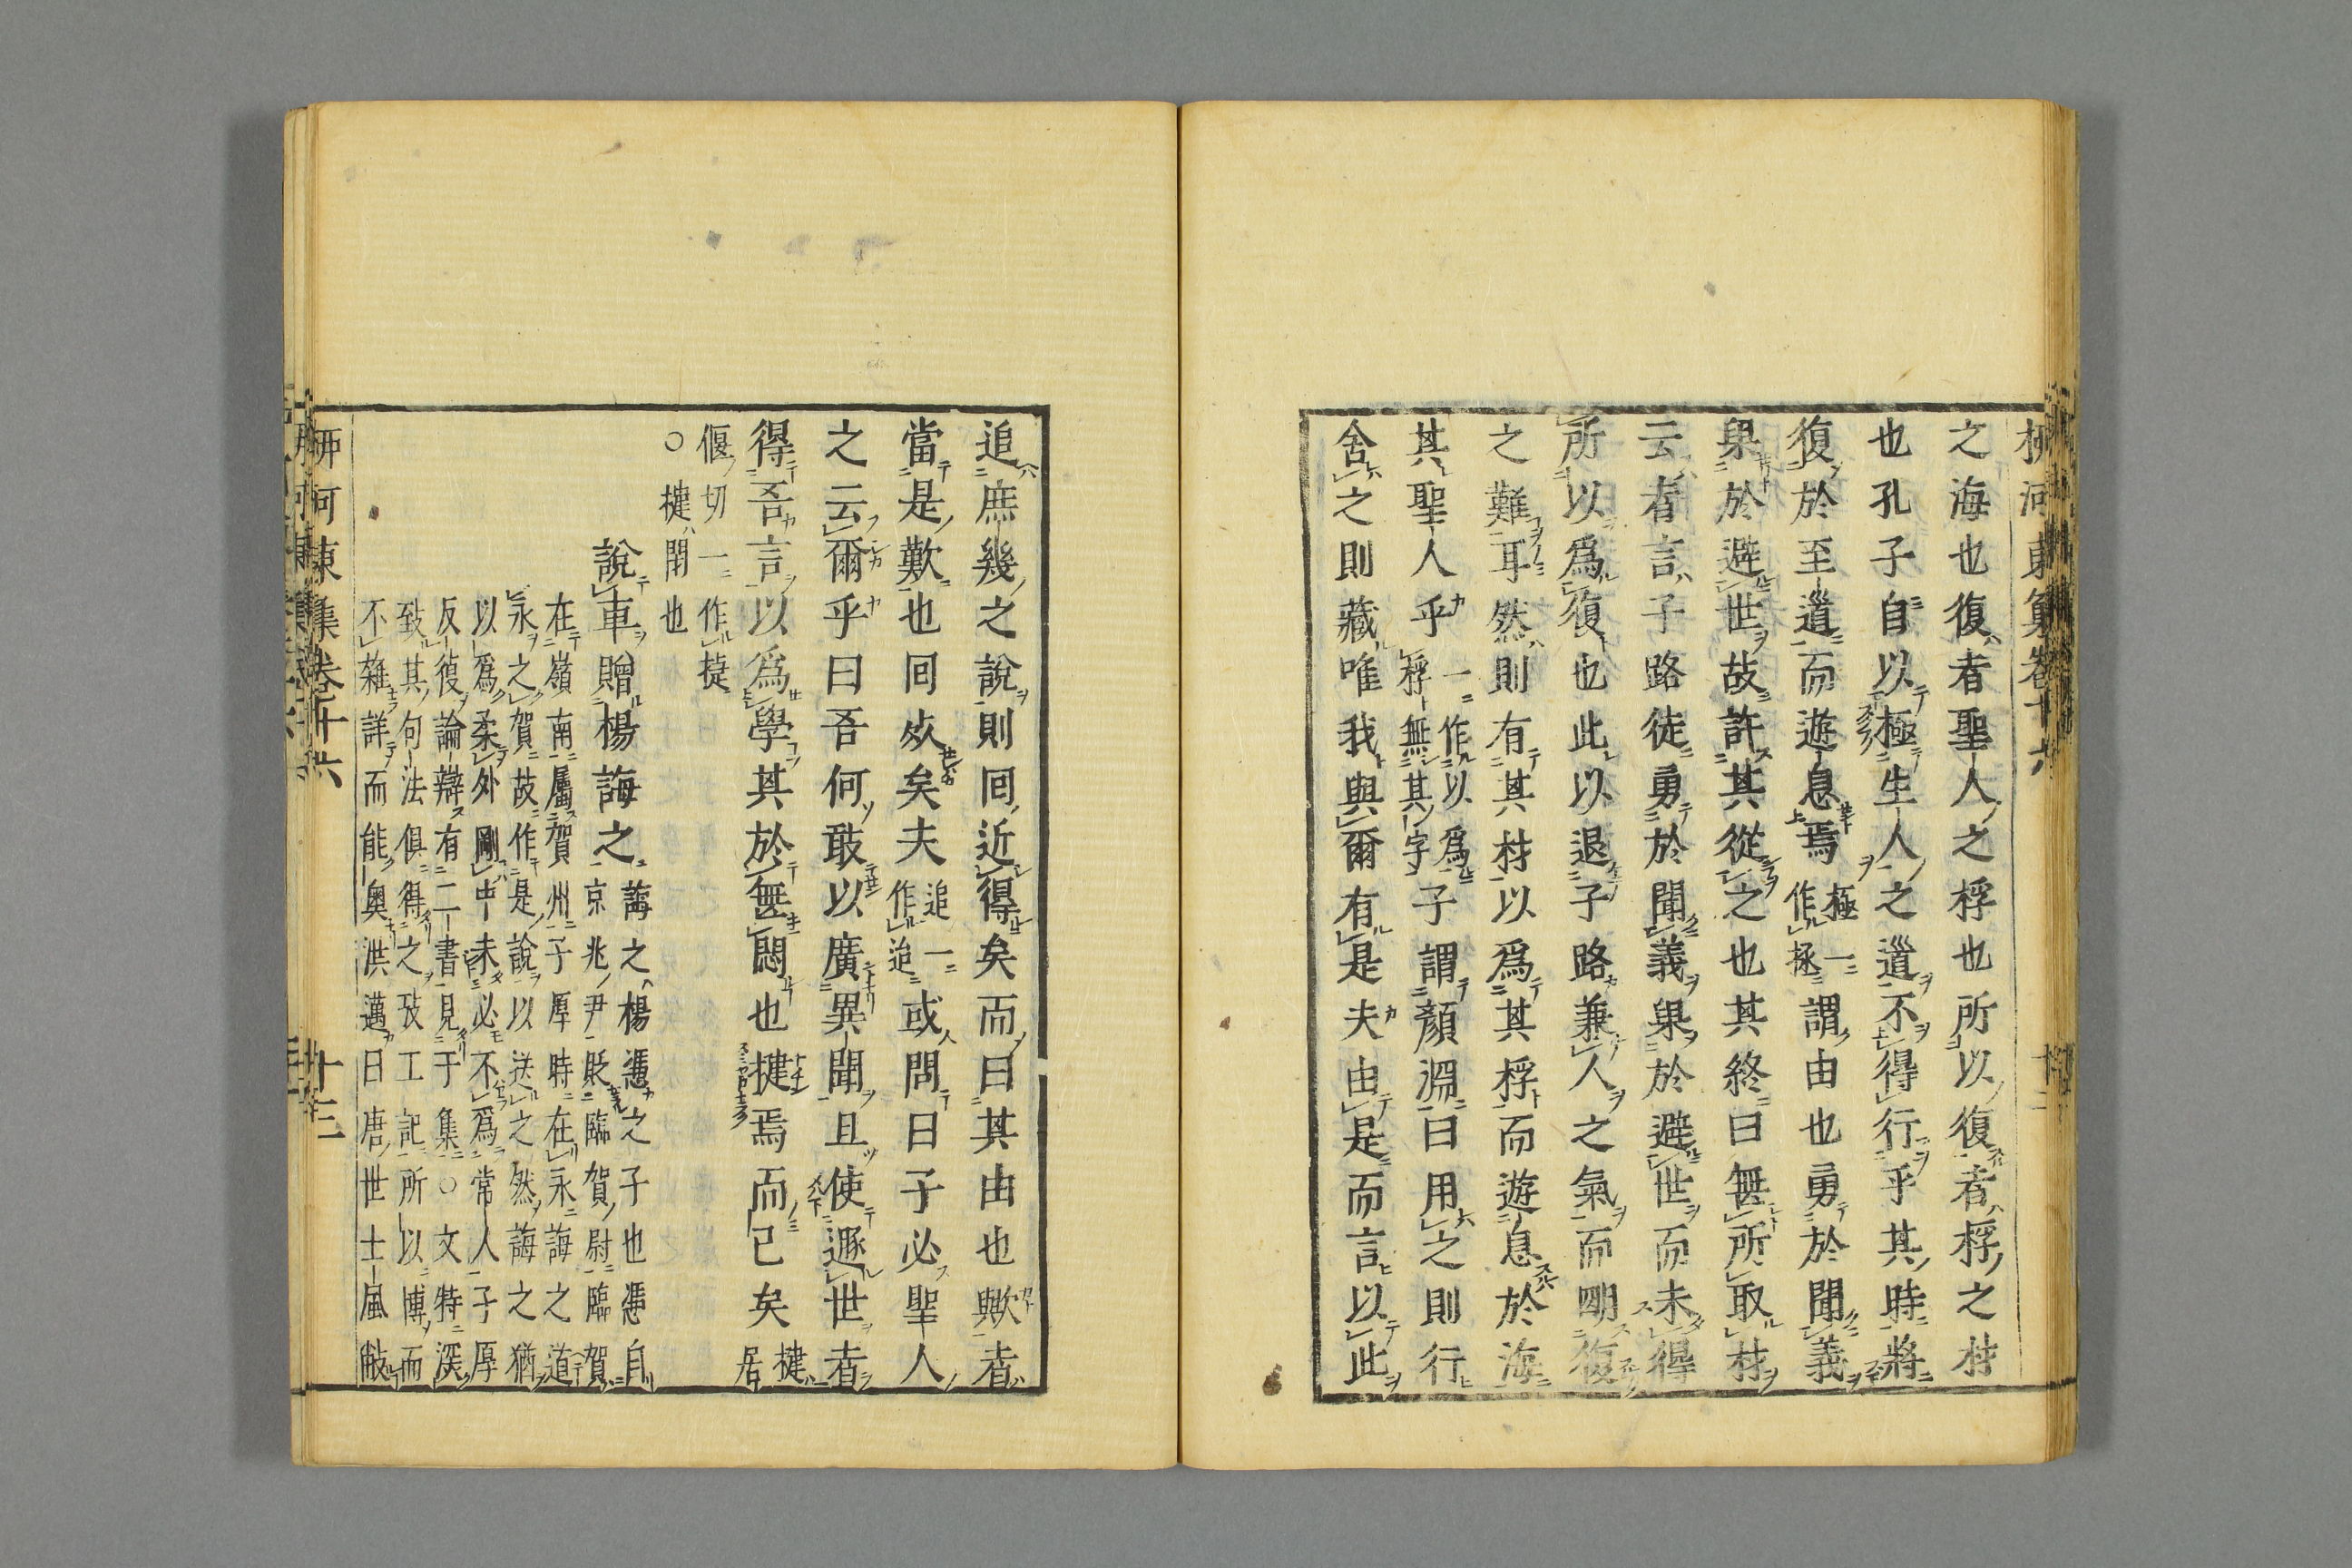 柳河東集卷十六
之海也復者聖人之桴也所以復者桴之材
也孔子自以極生人之道不得行乎其時將
復於至道而遊息焉極一作拯謂由也勇於聞義
果於避世故許其從之也其終曰無所取材
云者言子路徒勇於聞義果於避世而未得
所以爲復也此以退子路兼人之氣而明復
之難耳然則有其材以爲其桴而遊息於海
其聖人乎一作以爲桴無其字子謂顏淵曰用之則行
舍之則藏唯我與爾有是夫由是而言以此
追庶幾之說則回近得矣而曰其由也歟者
當是歎也回死矣夫追一作追或問曰子必聖人
之云爾乎曰吾何敢以廣異聞且使遯世者
得吾言以爲學其於無悶也揵焉而已矣揵居
偃切一作揵
○揵閉也
說車贈楊誨之誨之楊憑之子也憑自
京兆尹貶臨賀尉臨賀
在嶺南屬賀州子厚時在永誨之道
永之賀故作是說以送之然誨之猶
以爲柔外剛中未必不爲常人子厚
反復論辯有二書見于集○文特深
致其句法俱得之攷工記所以博而
不雜詳而能奧洪邁曰唐世士風敝
柳河東集卷十六
十三